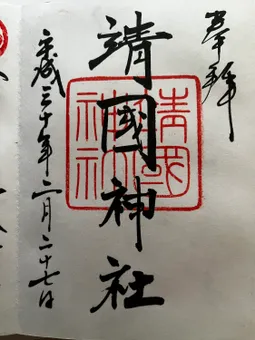 奉拝
靖國神社
平成三十年二月二十七日
靖國
神社